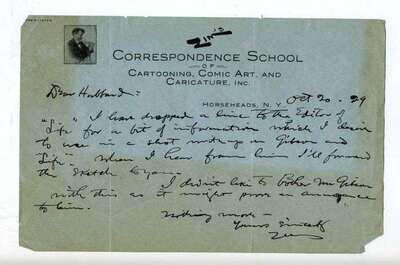 ZIM'S
CORRESPONDENCE SCHOOL
OF
CARTOONING, COMIC ART, AND
CARICATURE, INC.
HORSEHEADS, N.Y. Oct 20 - 29
Dear Hubbard:
I have dropped a line to the Editor of
"Life" for a bit of information which I desire
to use in a short write-up on Gibson and
Life. When I hear from him I'll forward
the sketch to you.
I didn't like to bother Mr Gibson
with this as it might prove an annoyance
to him.
Nothing more —
Yours Sincerely
Zim